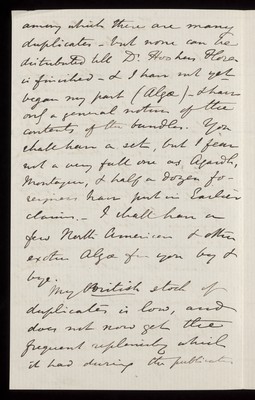 among which there are many
duplicates - but none can be
distributed till Dr. Hookers Flora
is finished - & I have not yet
began my part (Algæ) - & have
only a general notion of the
contents of the bundles. You
shall have a set, but I fear
not a very full one as Agardh,
Montagne, & half a dozen fo-
reigners have put in Earlier
claims. - I shall have a
few North American & other
exotic Algæ for you by &
bye.
My British stock of
duplicates is low, and
does not now get the
frequent replenishing which
it had during the publication